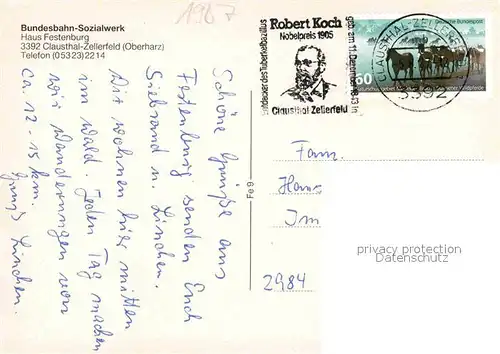 1987
Bundesbahn-Sozialwerk
Haus Festenburg
3392 Clausthal-Zellerfeld (Oberharz)
Telefon (05323)2214
Schöne Grüße aus
Festenburg senden Euch
Siebrand u. Linchen.
Wir wohnen hier mitten
im Wald. Jeden Tag machen
wir Wanderungen von
ca. 12 - 15 km.
Gruß Linchen.
Fe 9
Entdecker des Tuberkelbazillus
Robert Koch
Nobelpreis 1905
geb. am 11. Dezember 1843 in
Clausthal Zellerfeld
CLAUSTHAL-ZELLERFELD
3392
Deutsche Bundespost
60
Fam.
Hans
Im
2984
privacy protection
Datenschutz